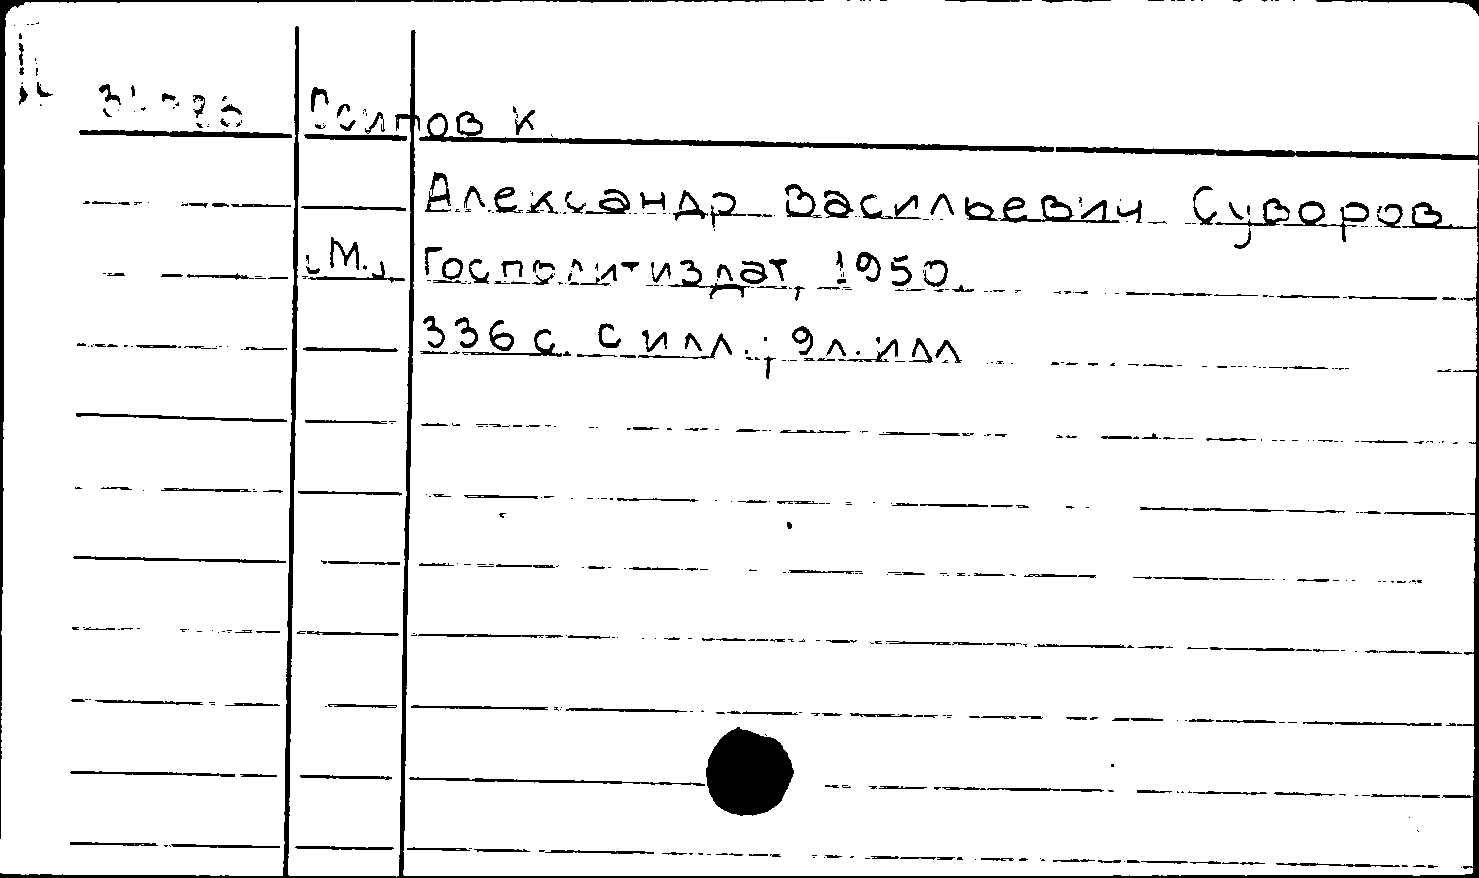 Осипов К.
Александр Васильевич Суворов
М., Госполитиздат, 1950.
336 с. с илл.; 9 л. илл